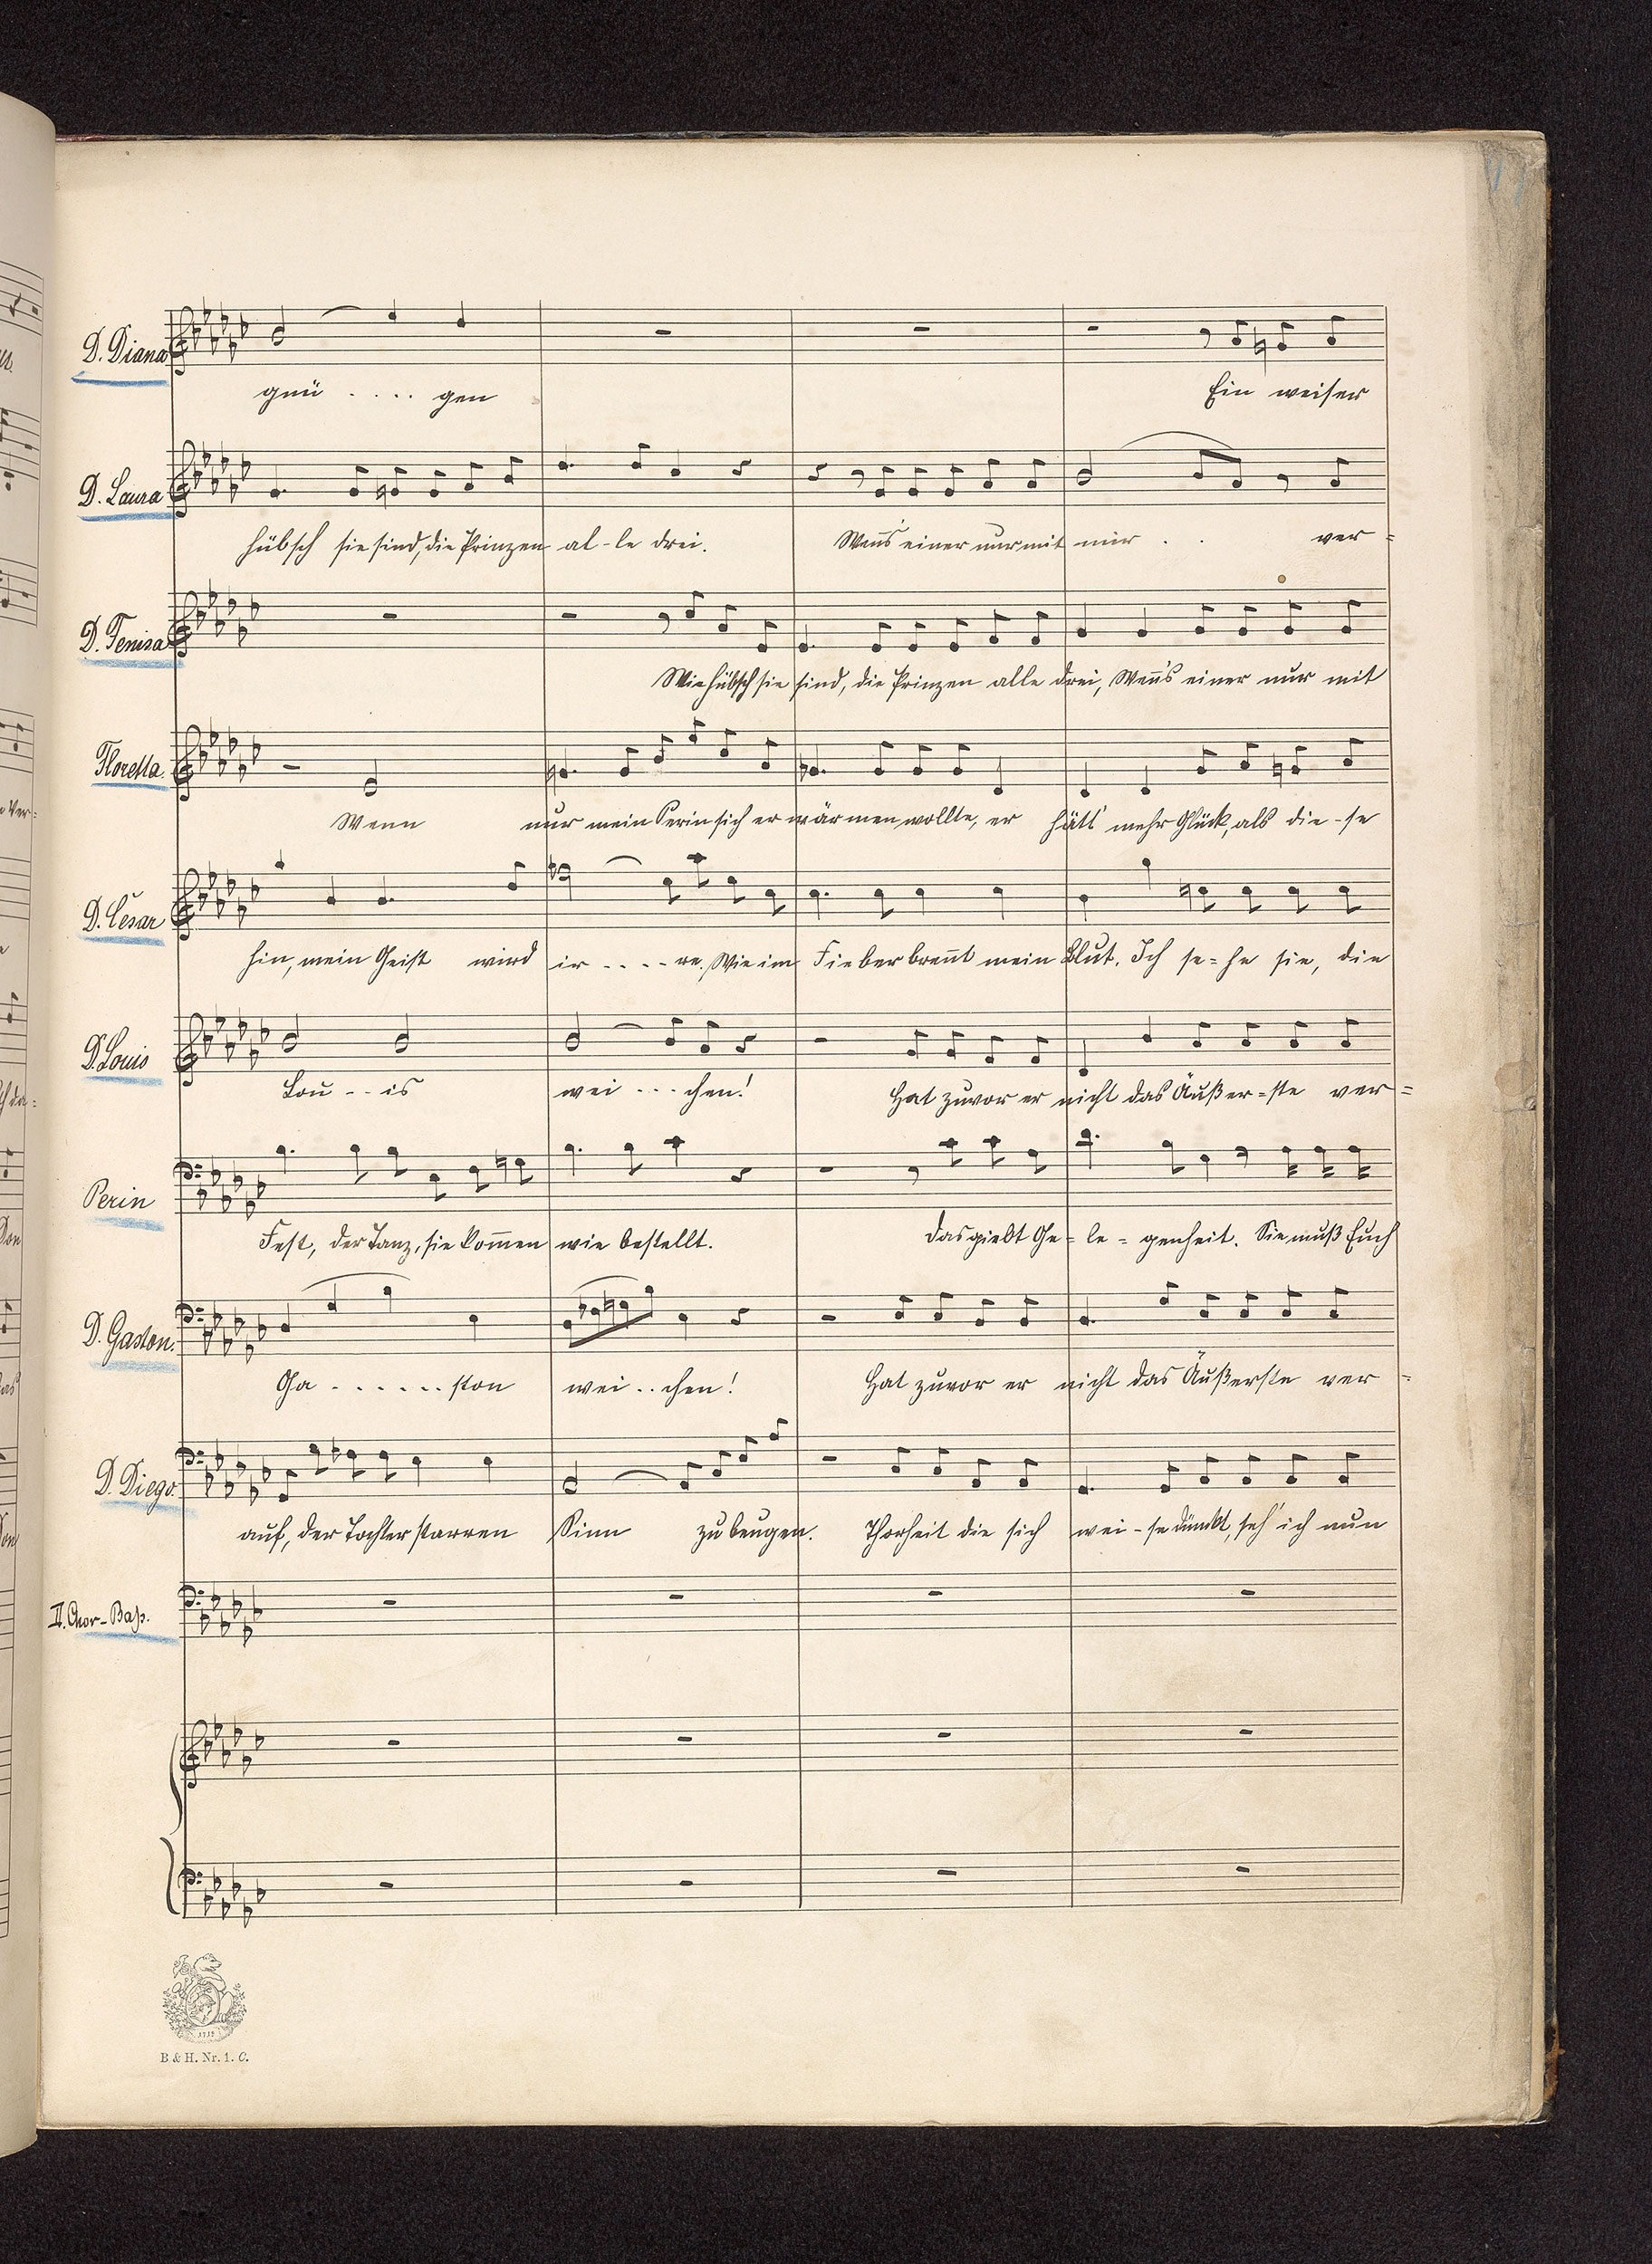 D. Diana
gnü . . . . gen Ein weiser
D. Laura
hübsch sie sind, die Prinzen al-le drei. Wen̄'s einer nur mit mir . . ver=
D. Fenisa
Wie hübsch sie sind, die Prinzen alle drei, Wen̄'s einer nur mit
Floretta.
Wenn nur mein Perin sich er wärmen wollte, er hätt' mehr Glück, als die-se
D. César
hin, mein Geist wird ir - - - - re. Wie im Fieber bren̄t mein Blut. Ich se=he sie, die
D. Louis
Lou - - is wei - - - chen! Hat zuvor er nicht das Äußer=ste ver=
Perin
Fest, der Tanz, sie kom̄en wie bestellt. Das giebt Ge=le=genheit. Sie muß Euch
D. Gaston.
Ga - - - - - - ston wei . . chen! Hat zuvor er nicht das Äußerste ver=
D. Diego.
auf, der Tochter starren Sinn zu beugen. Thorheit die sich wei-se dünkt, seh' ich nun
II. Chor-Baß.
1719
B & H. Nr. 1. C.